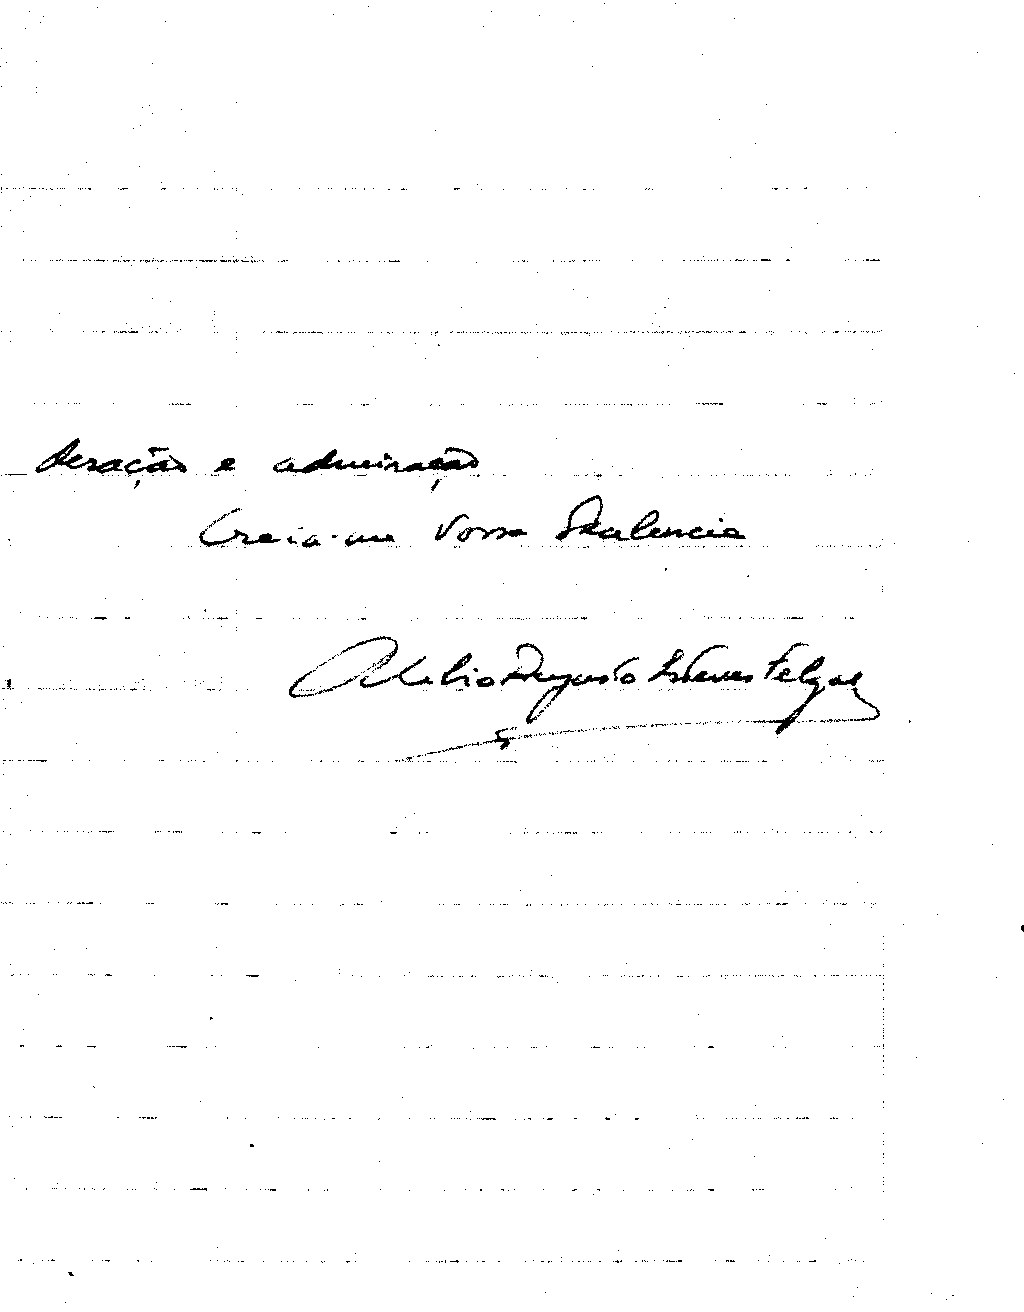 deração e admiração
Creia-me Vossa Excelencia
Augusto Esteves Felgas